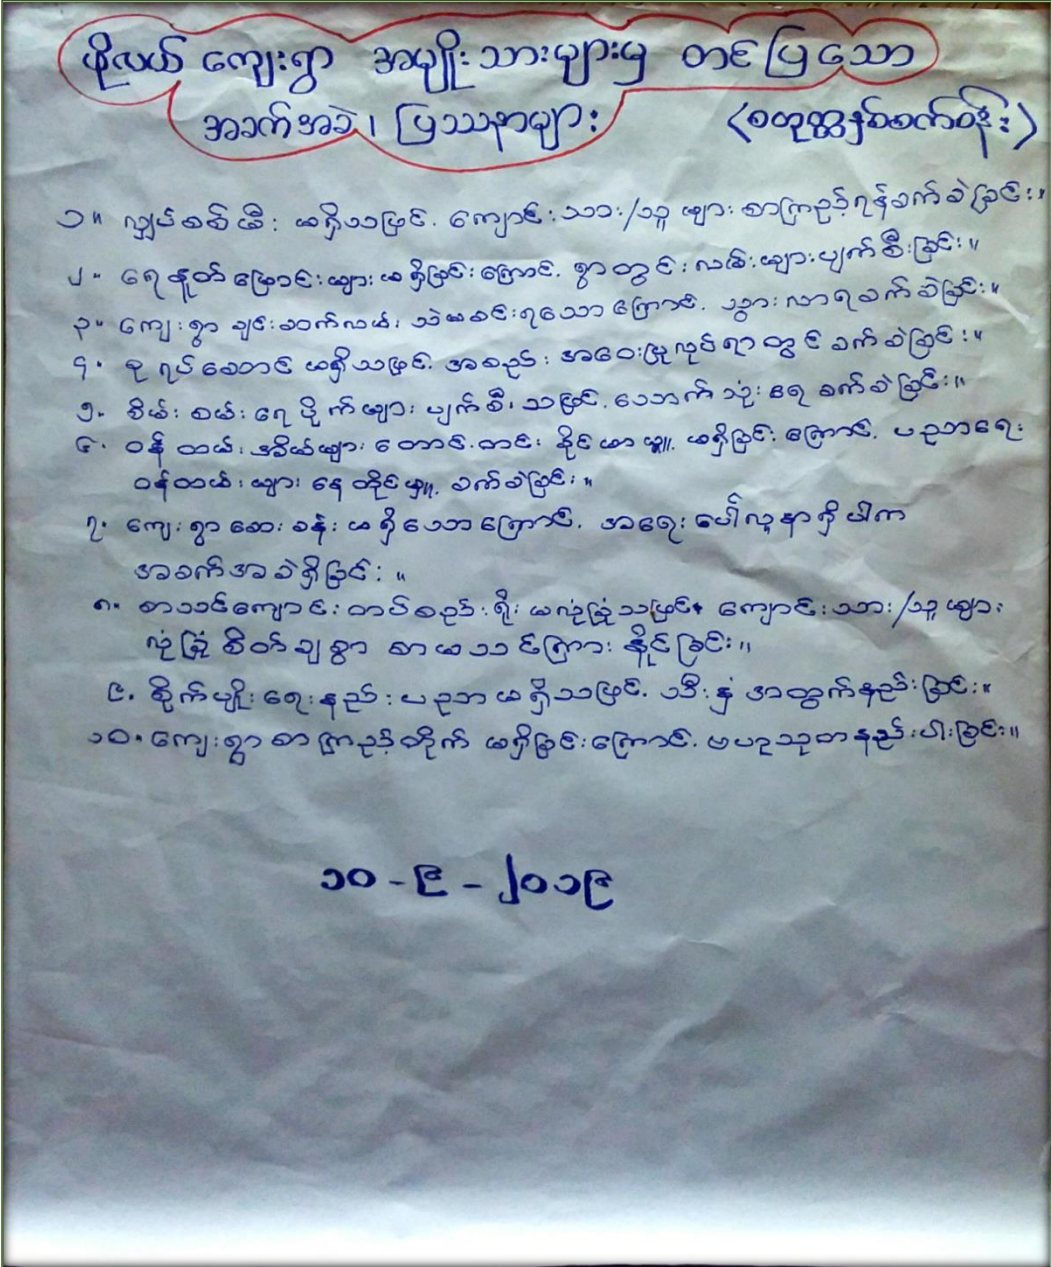 ဖိုလယ် ကျေးရွာ အမျိုးသားများမှ တင်ပြသော
အခက်အခဲ၊ ပြဿနာများ (စတုတ္ထနှစ်စက်ဝန်း)
၁။ လျှပ်စစ်မီး မရှိသဖြင့် ကျောင်းသား/သူများ စာကြည့်ရန်ခက်ခဲခြင်း။
၂။ ရေနှုတ်မြောင်းများမရှိခြင်းကြောင့် ရွာတွင်းလမ်းများပျက်စီးခြင်း။
၃။ ကျေးရွာချင်းဆက်လမ်း သဲမခင်းရသေးသောကြောင့် သွားလာရခက်ခဲခြင်း။
၄။ စုရပ်ဆောင် မရှိသဖြင့် အစည်းအဝေးပြုလုပ်ရာတွင် ခက်ခဲခြင်း။
၅။ စိမ်းစမ်းရေပိုက်များ ပျက်စီးသဖြင့် သောက်သုံးရေ ခက်ခဲခြင်း။
၆. ဝန်ထမ်းအိမ်များ တောင့်တင်းခိုင်မာမှု မရှိခြင်းကြောင့် ပညာရေး
ဝန်ထမ်းများ နေထိုင်မှု ခက်ခဲခြင်း။
၇. ကျေးရွာဆေးခန်းမရှိသောကြောင့် အရေးပေါ်လူနာရှိပါက
အခက်အခဲရှိခြင်း။
၈. စာသင်ကျောင်းတပ်စည်းရိုး မလုံခြုံသဖြင့် ကျောင်းသား/သူများ
လုံခြုံစိတ်ချစွာ စာမသင်ကြားနိုင်ခြင်း။
၉. စိုက်ပျိုးရေးနည်းပညာမရှိသဖြင့် သီးနှံအထွက်နည်းခြင်း။
၁၀. ကျေးရွာစာကြည့်တိုက် မရှိခြင်းကြောင့် ဗဟုသုတနည်းပါးခြင်း။
၁၀-၉-၂၀၁၉